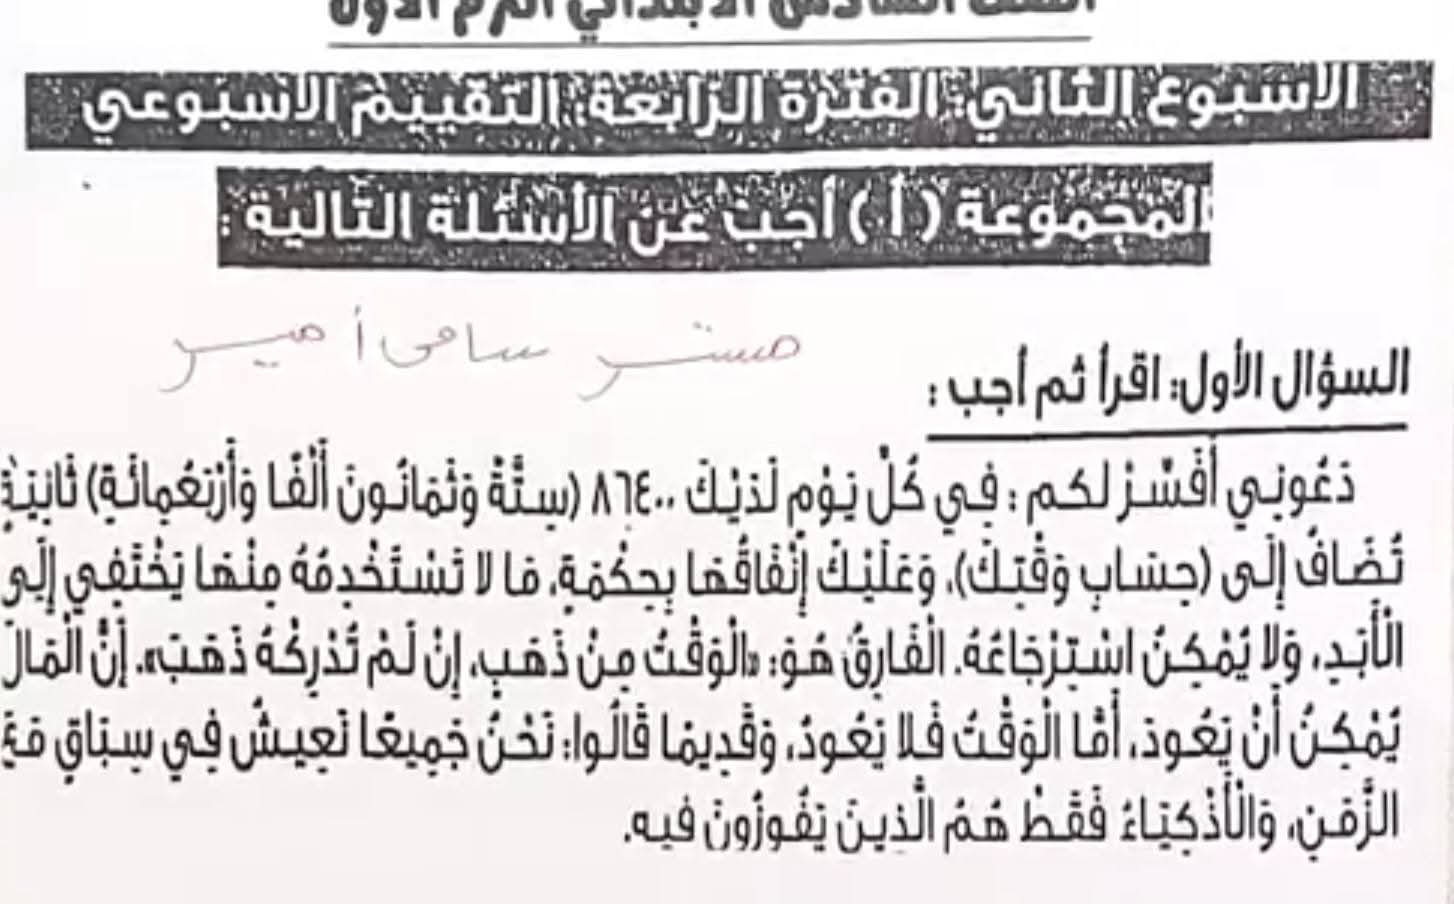 الصف السادس الابتدائي الترم الأول
الأسبوع الثاني: الفترة الرابعة: التقييم الأسبوعي
المجموعة ( أ ) أجب عن الأسئلة التالية :
مستر سامى أمير
السؤال الأول: اقرأ ثم أجب :
دَعُونِي أُفَسِّرْ لكم : فِي كُلِّ يَوْمٍ لَدَيْكَ ٨٦٤٠٠ (سِتَّةٌ وَثَمَانُونَ أَلْفًا وَأَرْبَعُمِائَةِ) ثَانِيَةٍ
تُضَافُ إِلَى (حِسَابِ وَقْتِكَ)، وَعَلَيْكَ إِنْفَاقُهَا بِحِكْمَةٍ، مَا لا تَسْتَخْدِمُهُ مِنْهَا يَخْتَفِي إِلَى
الْأَبَدِ، وَلا يُمْكِنُ اسْتِرْجَاعُهُ. الْفَارِقُ هُوَ: «الْوَقْتُ مِنْ ذَهَبٍ، إِنْ لَمْ تُدْرِكْهُ ذَهَبَ». إِنَّ الْمَالَ
يُمْكِنُ أَنْ يَعُودَ، أَمَّا الْوَقْتُ فَلا يَعُودُ، وَقَدِيمًا قَالُوا: نَحْنُ جَمِيعًا نَعِيشُ فِي سِبَاقٍ مَعَ
الزَّمَنِ، وَالْأَذْكِيَاءُ فَقَطْ هُمُ الَّذِينَ يَفُوزُونَ فيه.